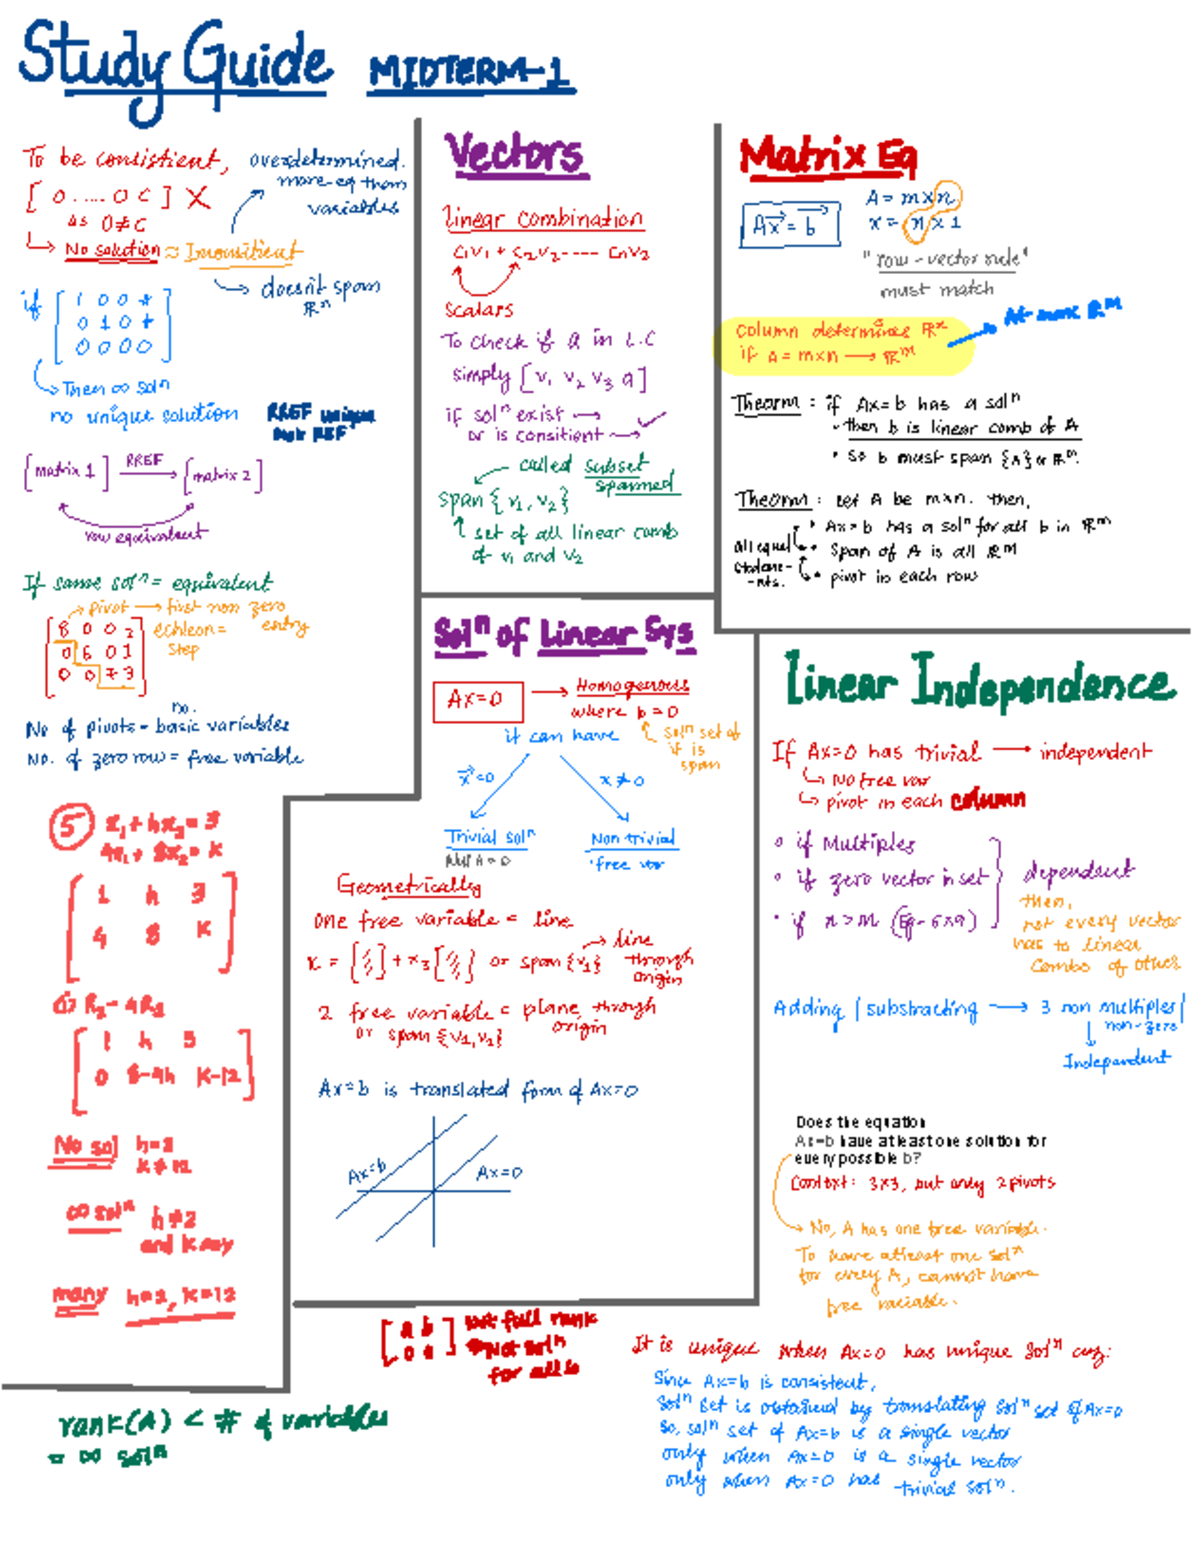 Study Guide MIDTERM-1
To be consistient,
[ 0 ..... 0 C ] X
as 0≠C
↳ No solution ≈ Inconsitient
overdetermined.
more eq than
variables
doesn't span
ℝⁿ
if [ 1 0 0 *
0 1 0 *
0 0 0 0 ]
↳ Then ∞ solⁿ
no unique solution
RREF unique
not REF
[matrix 1] RREF → [matrix 2]
row equivalent
If same solⁿ = equivalent
→ pivot → first non zero
entry
echleon =
step
[ 8 0 0 2
0 6 0 1
0 0 7 3 ]
No of pivots = no. basic variables
No. of zero row = free variable
⑤ x₁ + hx₂ = 3
4x₁ + 8x₂ = K
[ 1 h 3
4 8 K ]
R₂ - 4R₁
[ 1 h 3
0 8-4h K-12 ]
No sol h=2
K≠12
∞ solⁿ h≠2
and K any
many h=2, K=12
rank(A) < # of variables
= ∞ solⁿ
Vectors
linear combination
C₁V₁ + C₂V₂ ---- CₙV₂
Scalars
To check if a in L.C
simply [V₁ V₂ V₃ a]
if solⁿ exist →
or is consitient → ✓
called subset
spanned
span { V₁, V₂ }
set of all linear comb
of V₁ and V₂
Solⁿ of Linear Sys
Ax=0 → Homogenous
where b=0
it can have
solⁿ set of
it is
span
x⃗=0
x≠0
Trivial solⁿ
Non trivial
free var
Geometrically
one free variable = line
x = [ ] + x₃ [ ] or span {V₁} → line
through
origin
2 free variable = plane through
origin
or span {V₁, V₂}
Ax=b is translated form of Ax=0
Ax=b
Ax=0
[ a b
0 0 ]
not full rank
Not solⁿ
for all b
Matrix Eq
Ax⃗ = b⃗
A = m×n
x = n×1
"row-vector rule"
must match
Column determines ℝⁿ
if A = m×n → ℝᵐ
At max ℝᵐ
Theorm : if Ax=b has a solⁿ
• then b is linear comb of A
• so b must span {A} or ℝᵐ.
Theorm : Let A be m×n. then,
• Ax=b has a solⁿ for all b in ℝᵐ
• Span of A is all ℝᵐ
• pivot in each row
All equal
Stateme-
-nts.
Linear Independence
If Ax=0 has trivial → independent
↳ No free var
↳ pivot in each column
• if Multiples
• if zero vector in set
• if n>m (Eg- 6×9)
dependent
then,
not every vector
has to linear
combo of other
Adding / substracting → 3 non multiples /
non-zero
Independent
Does the equation
Ax=b have at least one solution for
every possible b?
Context: 3×3, but only 2 pivots
→ No, A has one free variable.
To have atleast one solⁿ
for every A, cannot have
free variable.
It is unique when Ax=0 has unique solⁿ cuz:
Since Ax=b is consistent,
solⁿ set is obtained by translating solⁿ set of Ax=0
So, solⁿ set of Ax=b is a single vector
only when Ax=0 is a single vector
only when Ax=0 has trivial solⁿ.